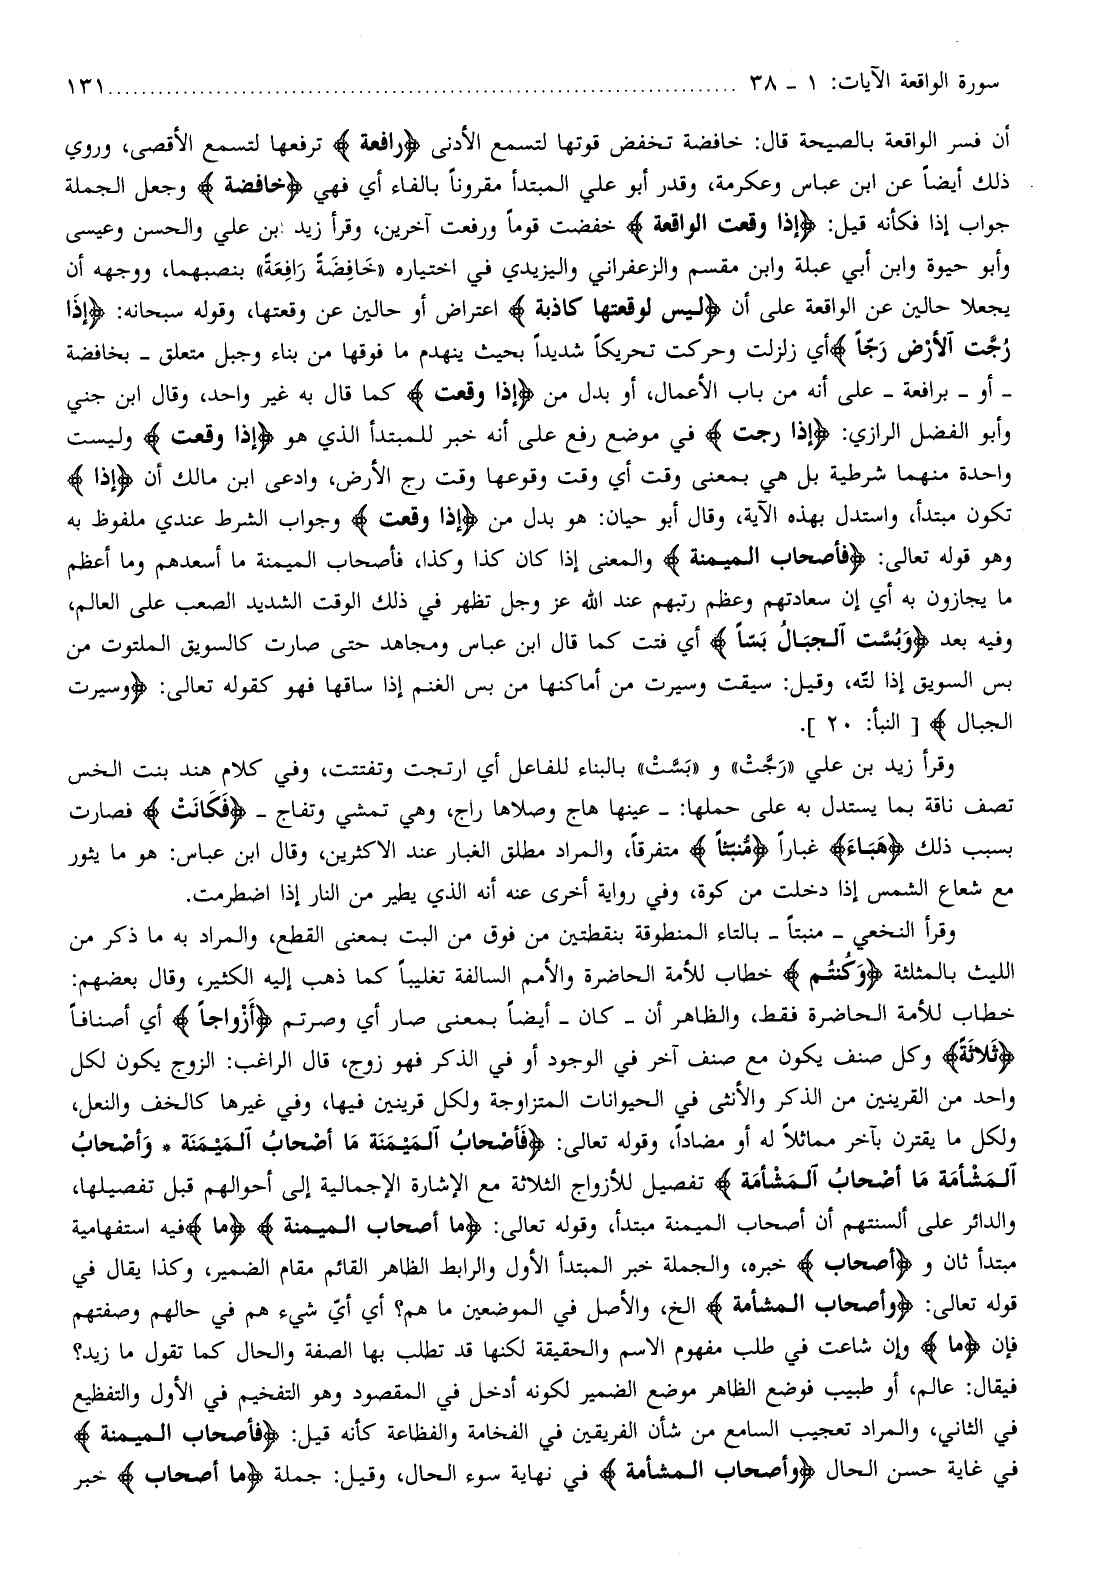 سورة الواقعة الآيات: ١ ـ ٣٨ ........................................................................... ١٣١
أن فسر الواقعة بالصيحة قال: خافضة تخفض قوتها لتسمع الأدنى ﴿رافعة﴾ ترفعها لتسمع الأقصى، وروي
ذلك أيضاً عن ابن عباس وعكرمة، وقدر أبو علي المبتدأ مقروناً بالفاء أي فهي ﴿خافضة﴾ وجعل الجملة
جواب إذا فكأنه قيل: ﴿إذا وقعت الواقعة﴾ خفضت قوماً ورفعت آخرين، وقرأ زيد بن علي والحسن وعيسى
وأبو حيوة وابن أبي عبلة وابن مقسم والزعفراني واليزيدي في اختياره «خَافِضَةً رَافِعَةً» بنصبهما، ووجهه أن
يجعلا حالين عن الواقعة على أن ﴿ليس لوقعتها كاذبة﴾ اعتراض أو حالين عن وقعتها، وقوله سبحانه: ﴿إذَا
رُجَّت ٱلأرْض رَجّاً﴾أي زلزلت وحركت تحريكاً شديداً بحيث ينهدم ما فوقها من بناء وجبل متعلق ـ بخافضة
ـ أو ـ برافعة ـ على أنه من باب الأعمال، أو بدل من ﴿إذا وقعت﴾ كما قال به غير واحد، وقال ابن جني
وأبو الفضل الرازي: ﴿إذا رجت﴾ في موضع رفع على أنه خبر للمبتدأ الذي هو ﴿إذا وقعت﴾ وليست
واحدة منهما شرطية بل هي بمعنى وقت أي وقت وقوعها وقت رج الأرض، وادعى ابن مالك أن ﴿إذا﴾
تكون مبتدأ، واستدل بهذه الآية، وقال أبو حيان: هو بدل من ﴿إذا وقعت﴾ وجواب الشرط عندي ملفوظ به
وهو قوله تعالى: ﴿فأصحاب الميمنة﴾ والمعنى إذا كان كذا وكذا، فأصحاب الميمنة ما أسعدهم وما أعظم
ما يجازون به أي إن سعادتهم وعظم رتبهم عند الله عز وجل تظهر في ذلك الوقت الشديد الصعب على العالم،
وفيه بعد ﴿وَبُسَّت ٱلجبَالُ بَسّاً﴾ أي فتت كما قال ابن عباس ومجاهد حتى صارت كالسويق الملتوت من
بس السويق إذا لتّه، وقيل: سيقت وسيرت من أماكنها من بس الغنم إذا ساقها فهو كقوله تعالى: ﴿وسيرت
الجبال﴾ [ النبأ: ٢٠ ].
وقرأ زيد بن علي «رَجَّتْ» و «بَسَّتْ» بالبناء للفاعل أي ارتجت وتفتتت، وفي كلام هند بنت الخس
تصف ناقة بما يستدل به على حملها: ـ عينها هاج وصلاها راج، وهي تمشي وتفاج ـ ﴿فَكَانَتْ﴾ فصارت
بسبب ذلك ﴿هَبَاءَ﴾ غباراً ﴿مُّنبَثاً﴾ متفرقاً، والمراد مطلق الغبار عند الاكثرين، وقال ابن عباس: هو ما يثور
مع شعاع الشمس إذا دخلت من كوة، وفي رواية أخرى عنه أنه الذي يطير من النار إذا اضطرمت.
وقرأ النخعي ـ منبتاً ـ بالتاء المنطوقة بنقطتين من فوق من البت بمعنى القطع، والمراد به ما ذكر من
الليث بالمثلثة ﴿وَكُنتُم﴾ خطاب للأمة الحاضرة والأمم السالفة تغليباً كما ذهب إليه الكثير، وقال بعضهم:
خطاب للأمة الحاضرة فقط، والظاهر أن ـ كان ـ أيضاً بمعنى صار أي وصرتم ﴿أَزْواجاً﴾ أي أصنافاً
﴿ثَلاثَةً﴾ وكل صنف يكون مع صنف آخر في الوجود أو في الذكر فهو زوج، قال الراغب: الزوج يكون لكل
واحد من القرينين من الذكر والأنثى في الحيوانات المتزاوجة ولكل قرينين فيها، وفي غيرها كالخف والنعل،
ولكل ما يقترن بآخر مماثلاً له أو مضاداً، وقوله تعالى: ﴿فَأصْحابُ ٱلمَيْمَنَة مَا أصْحابُ ٱلمَيْمَنَة * وَأصْحابُ
ٱلمَشْأمَة مَا أصْحابُ ٱلمَشْأمَة﴾ تفصيل للأزواج الثلاثة مع الإشارة الإجمالية إلى أحوالهم قبل تفصيلها،
والدائر على ألسنتهم أن أصحاب الميمنة مبتدأ، وقوله تعالى: ﴿ما أصحاب الميمنة﴾ ﴿ما﴾فيه استفهامية
مبتدأ ثان و ﴿أصحاب﴾ خبره، والجملة خبر المبتدأ الأول والرابط الظاهر القائم مقام الضمير، وكذا يقال في
قوله تعالى: ﴿وأصحاب المشأمة﴾ الخ، والأصل في الموضعين ما هم؟ أي أيّ شيء هم في حالهم وصفتهم
فإن ﴿ما﴾ وإن شاعت في طلب مفهوم الاسم والحقيقة لكنها قد تطلب بها الصفة والحال كما تقول ما زيد؟
فيقال: عالم، أو طبيب فوضع الظاهر موضع الضمير لكونه أدخل في المقصود وهو التفخيم في الأول والتفظيع
في الثاني، والمراد تعجيب السامع من شأن الفريقين في الفخامة والفظاعة كأنه قيل: ﴿فأصحاب الميمنة﴾
في غاية حسن الحال ﴿وأصحاب المشأمة﴾ في نهاية سوء الحال، وقيل: جملة ﴿ما أصحاب﴾ خبر